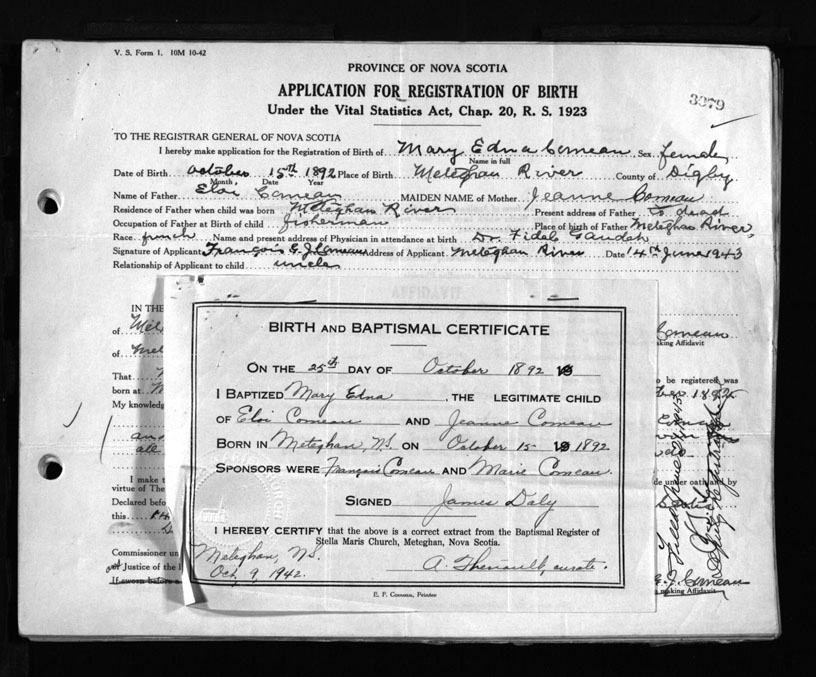 V. S. Form 1. 10M 10-42
PROVINCE OF NOVA SCOTIA
APPLICATION FOR REGISTRATION OF BIRTH
3379
Under the Vital Statistics Act, Chap. 20, R. S. 1923
TO THE REGISTRAR GENERAL OF NOVA SCOTIA
I hereby make application for the Registration of Birth of Mary Edna Comeau Sex female
Name in full
Date of Birth October 15th 1892 Place of Birth Meteghan River County of Digby
Month Date Year
Name of Father Eloi Comeau MAIDEN NAME of Mother Jeanne Comeau
Residence of Father when child was born Meteghan River Present address of Father is dead
Occupation of Father at Birth of child fisherman Place of birth of Father Meteghan River,
Race french Name and present address of Physician in attendance at birth Dr. Fidele Gaudet
Signature of Applicant François E. J. Comeau Address of Applicant Meteghan River Date 14th June 1943
Relationship of Applicant to child uncle
IN THE
of
of
That
born at
My knowledg
and
all
I make t
virtue of The
Declared befo
this 14
Commissioner un
Justice of the
If sworn before a
BIRTH AND BAPTISMAL CERTIFICATE
ON THE 25th DAY OF October 1892
I BAPTIZED Mary Edna, THE LEGITIMATE CHILD
OF Eloi Comeau AND Jeanne Comeau
BORN IN Meteghan, N.S. ON October 15 1892
SPONSORS WERE François Comeau AND Marie Comeau
SIGNED James Daly
I HEREBY CERTIFY that the above is a correct extract from the Baptismal Register of
Stella Maris Church, Meteghan, Nova Scotia.
Meteghan, N.S.
Oct, 9, 1942. A. Theriault, curate.
Comeau
aking Affidavit
o be registered was
1892
de under oath and by
Comeau
making Affidavit